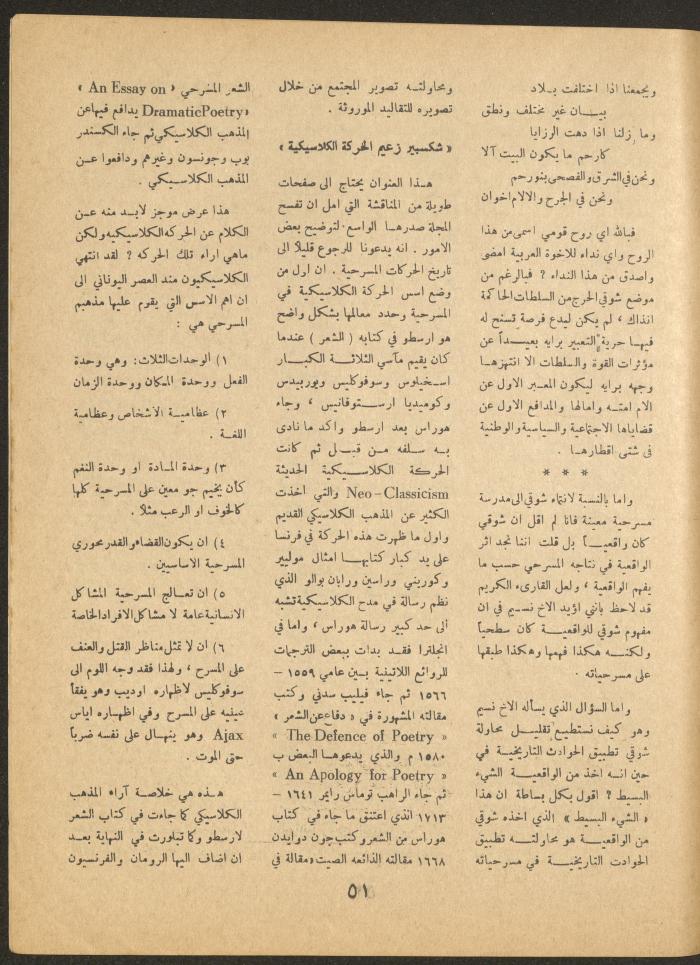 ويجمعنا اذا اختلفت بلاد
بيان غير مختلف ونطق
وما زلنا اذا دهت الرزايا
كارحم ما يكون البيت آلا
ونحن في الشرق والفصحى بنو رحم
ونحن في الجرح والالام اخوان
فبالله اي روح قومي اسمى من هذا
الروح واي نداء للاخوة العربية امضى
واصدق من هذا النداء ? فبالرغم من
موضع شوقي الحرج من السلطات الحاكمة
انذاك ، لم يكن ليدع فرصة تسنح له
فيها حرية التعبير برايه بعيداً عن
مؤثرات القوة والسلطات الا انتهزها
وجهه برايه ليكون المعبر الاول عن
الام امته وامالها والمدافع الاول عن
قضاياها الاجتماعية والسياسية والوطنية
في شتى اقطارها .
* * *
واما بالنسبة لانتماء شوقي الى مدرسة
مسرحية معينة فانا لم اقل ان شوقي
كان واقعياً بل قلت اننا نجد اثر
الواقعية في نتاجه المسرحي حسب ما
يفهم الواقعية ، ولعل القارىء الكريم
قد لاحظ بانني اؤيد الاخ نسيم في ان
مفهوم شوقي للواقعية كان سطحياً
ولكنه هكذا فهمها وهكذا طبقها
على مسرحياته .
واما السؤال الذي يسأله الاخ نسيم
وهو كيف نستطيع تقليل محاولة
شوقي تطبيق الحوادث التاريخية في
حين انه اخذ من الواقعية الشيء
البسيط ? اقول بكل بساطة ان هذا
« الشيء البسيط » الذي اخذه شوقي
من الواقعية هو محاولته تطبيق
الحوادث التاريخية في مسرحياته
ومحاولته تصوير المجتمع من خلال
تصويره للتقاليد الموروثة .
« شكسبير زعيم الحركة الكلاسيكية »
هذا العنوان يحتاج الى صفحات
طويلة من المناقشة التي امل ان تفسح
المجلة صدرها الواسع لتوضيح بعض
الامور . انه يدعونا للرجوع قليلاً الى
تاريخ الحركات المسرحية . ان اول من
وضع اسس الحركة الكلاسيكية في
المسرحية وحدد معالمها بشكل واضح
هو ارسطو في كتابه ( الشعر ) عندما
كان يقيم مآسي الثلاثة الكبار
اسخيلوس وسوفوكليس ويوربيدس
وكوميديا ارستوفانيس ، وجاء
هوراس بعد ارسطو واكد ما نادى
به سلفه من قبل ثم كانت
الحركة الكلاسيكية الحديثة
Neo-Classicism والتي اخذت
الكثير عن المذهب الكلاسيكي القديم
واول ما ظهرت هذه الحركة في فرنسا
على يد كبار كتابها امثال موليير
وكورني وراسين ورابان بوالو الذي
نظم رسالة في مدح الكلاسيكية تشبه
الى حد كبير رسالة هوراس ، واما في
انجلترا فقد بدات ببعض الترجمات
للروائع اللاتينية بين عامي ١٥٥٩ –
١٥٦٦ ثم جاء فيليب سدني وكتب
مقالته المشهورة في « دفاع عن الشعر »
« The Defence of Poetry »
١٥٨٠ م والذي يدعوها البعض ب
« An Apology for Poetry »
ثم جاء الراهب توماس رايمر ١٦٤١ –
١٧١٣ الذي اعتنق ما جاء في كتاب
هوراس من الشعر وكتب چون درايدن
١٦٦٨ مقالته الذائعه الصيت «مقالة في
الشعر المسرحي » An Essay on «
«DramaticPoetry يدافع فيها عن
المذهب الكلاسيكي ثم جاء الكسندر
بوب وجونسون وغيرهم ودافعوا عن
المذهب الكلاسيكي .
هذا عرض موجز لابد منه عن
الكلام عن الحركه الكلاسيكيه ولكن
ماهي اراء تلك الحركه ? لقد انتهي
الكلاسيكيون منذ العصر اليوناني الى
ان اهم الاسس التي يقوم عليها مذهبهم
المسرحي هي :
١) الوحدات الثلاث: وهي وحدة
الفعل ووحدة المكان ووحدة الزمان
٢) عظامية الاشخاص وعظامية
اللغة .
٣) وحدة المادة او وحدة النغم
كأن يخيم جو معين على المسرحية كلها
كالخوف او الرعب مثلا .
٤) ان يكون القضاء والقدر محوري
المسرحية الاساسيين .
٥) ان تعالج المسرحية المشاكل
الانسانية عامة لا مشاكل الافراد الخاصة
٦) ان لا تمثل مناظر القتل والعنف
على المسرح ، ولهذا فقد وجه اللوم الى
سوفوكليس لاظهاره اوديب وهو يفقأ
عينيه على المسرح وفي اظهاره اياس
Ajax وهو ينهال على نفسه ضرباً
حتى الموت .
هذه هي خلاصة آراء المذهب
الكلاسيكي كما جاءت في كتاب الشعر
لارسطو وكما تبلورت في النهاية بعد
ان اضاف اليها الرومان والفرنسيون
٥١